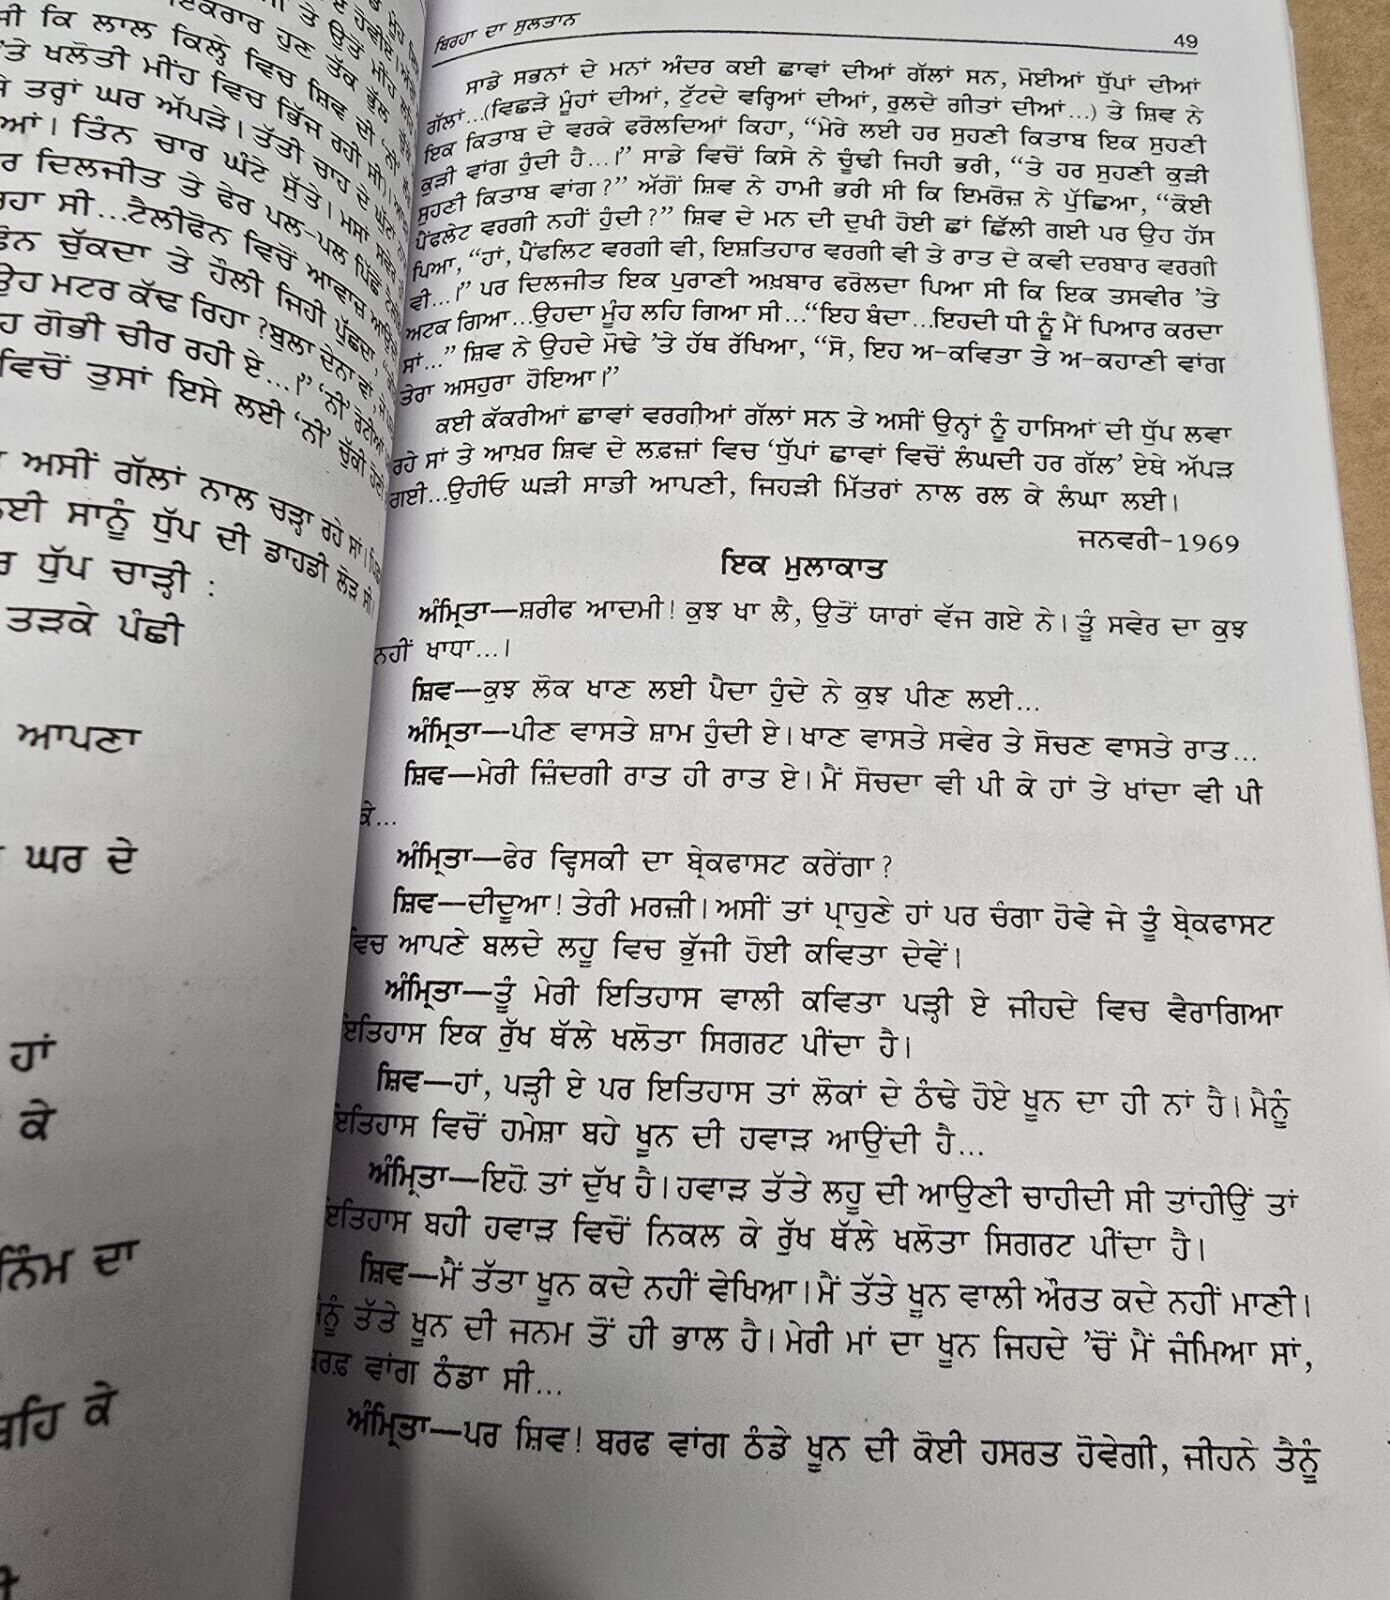 ਇਕਰਾਰ ਹੁਣ ਤੱਕ ਭੁੱਲ
ਸੀ ਕਿ ਲਾਲ ਕਿਲ੍ਹੇ ਵਿਚ ਸ਼ਿਵ ਦੀ ‘ਨੀਂ’
’ਤੇ ਖਲੋਤੀ ਮੀਂਹ ਵਿਚ ਭਿੱਜ ਰਹੀ ਸੀ।
ਤਰ੍ਹਾਂ ਘਰ ਅੱਪੜੇ। ਤੱਤੀ ਚਾਹ ਦੇ ਘੁੱਟ
ਆਂ। ਤਿੰਨ ਚਾਰ ਘੰਟੇ ਸੁੱਤੇ। ਮਸਾਂ ਸਵੇਰ
ਰ ਦਿਲਜੀਤ ਤੇ ਫੇਰ ਪਲ-ਪਲ ਪਿੱਛੋਂ
ਰਹਾ ਸੀ...ਟੈਲੀਫੋਨ ਵਿਚੋਂ ਆਵਾਜ਼
ਫੋਨ ਚੁੱਕਦਾ ਤੇ ਹੌਲੀ ਜਿਹੀ ਪੁੱਛਦਾ,
ਉਹ ਮਟਰ ਕੱਢ ਰਿਹਾ ?ਬੁਲਾ ਦੇਨਾ ਵਾਂ,
ਹ ਗੋਭੀ ਚੀਰ ਰਹੀ ਏ...।” ‘ਨੀਂ’ ਰੋਟੀਆਂ
ਵਿਚੋਂ ਤੁਸਾਂ ਇਸੇ ਲਈ ‘ਨੀਂ’ ਚੁੱਕੀ ਹੋਣੀ
ਅਸੀਂ ਗੱਲਾਂ ਨਾਲ ਚੜ੍ਹਾ ਰਹੇ ਸਾਂ।
ਲਈ ਸਾਨੂੰ ਧੁੱਪ ਦੀ ਡਾਹਡੀ ਲੋੜ ਸੀ।
ਰ ਧੁੱਪ ਚਾੜ੍ਹੀ :
ਤੜਕੇ ਪੰਛੀ
ਆਪਣਾ
ਘਰ ਦੇ
ਹਾਂ
ਕੇ
ਨਿੰਮ ਦਾ
ਬਹਿ ਕੇ
ਬਿਰਹਾ ਦਾ ਸੁਲਤਾਨ 49
ਸਾਡੇ ਸਭਨਾਂ ਦੇ ਮਨਾਂ ਅੰਦਰ ਕਈ ਛਾਵਾਂ ਦੀਆਂ ਗੱਲਾਂ ਸਨ, ਮੋਈਆਂ ਧੁੱਪਾਂ ਦੀਆਂ
ਗੱਲਾਂ...(ਵਿਛੜੇ ਮੂੰਹਾਂ ਦੀਆਂ, ਟੁੱਟਦੇ ਵਰ੍ਹਿਆਂ ਦੀਆਂ, ਰੁਲਦੇ ਗੀਤਾਂ ਦੀਆਂ...) ਤੇ ਸ਼ਿਵ ਨੇ
ਇਕ ਕਿਤਾਬ ਦੇ ਵਰਕੇ ਫਰੋਲਦਿਆਂ ਕਿਹਾ, “ਮੇਰੇ ਲਈ ਹਰ ਸੁਹਣੀ ਕਿਤਾਬ ਇਕ ਸੁਹਣੀ
ਕੁੜੀ ਵਾਂਗ ਹੁੰਦੀ ਹੈ...।” ਸਾਡੇ ਵਿਚੋਂ ਕਿਸੇ ਨੇ ਚੂੰਢੀ ਜਿਹੀ ਭਰੀ, “ਤੇ ਹਰ ਸੁਹਣੀ ਕੁੜੀ
ਸੁਹਣੀ ਕਿਤਾਬ ਵਾਂਗ ?” ਅੱਗੋਂ ਸ਼ਿਵ ਨੇ ਹਾਮੀ ਭਰੀ ਸੀ ਕਿ ਇਮਰੋਜ਼ ਨੇ ਪੁੱਛਿਆ, “ਕੋਈ
ਪੈਂਫਲੇਟ ਵਰਗੀ ਨਹੀਂ ਹੁੰਦੀ ?” ਸ਼ਿਵ ਦੇ ਮਨ ਦੀ ਦੁਖੀ ਹੋਈ ਛਾਂ ਛਿੱਲੀ ਗਈ ਪਰ ਉਹ ਹੱਸ
ਪਿਆ, “ਹਾਂ, ਪੈਂਫਲਿਟ ਵਰਗੀ ਵੀ, ਇਸ਼ਤਿਹਾਰ ਵਰਗੀ ਵੀ ਤੇ ਰਾਤ ਦੇ ਕਵੀ ਦਰਬਾਰ ਵਰਗੀ
ਵੀ...।” ਪਰ ਦਿਲਜੀਤ ਇਕ ਪੁਰਾਣੀ ਅਖ਼ਬਾਰ ਫਰੋਲਦਾ ਪਿਆ ਸੀ ਕਿ ਇਕ ਤਸਵੀਰ ’ਤੇ
ਅਟਕ ਗਿਆ...ਉਹਦਾ ਮੂੰਹ ਲਹਿ ਗਿਆ ਸੀ...“ਇਹ ਬੰਦਾ...ਇਹਦੀ ਧੀ ਨੂੰ ਮੈਂ ਪਿਆਰ ਕਰਦਾ
ਸਾਂ...” ਸ਼ਿਵ ਨੇ ਉਹਦੇ ਮੋਢੇ ’ਤੇ ਹੱਥ ਰੱਖਿਆ, “ਸੋ, ਇਹ ਅ-ਕਵਿਤਾ ਤੇ ਅ-ਕਹਾਣੀ ਵਾਂਗ
ਤੇਰਾ ਅਸਹੁਰਾ ਹੋਇਆ।”
ਕਈ ਕੱਕਰੀਆਂ ਛਾਵਾਂ ਵਰਗੀਆਂ ਗੱਲਾਂ ਸਨ ਤੇ ਅਸੀਂ ਉਨ੍ਹਾਂ ਨੂੰ ਹਾਸਿਆਂ ਦੀ ਧੁੱਪ ਲਵਾ
ਰਹੇ ਸਾਂ ਤੇ ਆਖ਼ਰ ਸ਼ਿਵ ਦੇ ਲਫ਼ਜ਼ਾਂ ਵਿਚ ‘ਧੁੱਪਾਂ ਛਾਵਾਂ ਵਿਚੋਂ ਲੰਘਦੀ ਹਰ ਗੱਲ’ ਏਥੇ ਅੱਪੜ
ਗਈ...ਉਹੀਓ ਘੜੀ ਸਾਡੀ ਆਪਣੀ, ਜਿਹੜੀ ਮਿੱਤਰਾਂ ਨਾਲ ਰਲ ਕੇ ਲੰਘਾ ਲਈ।
ਜਨਵਰੀ-1969
ਇਕ ਮੁਲਾਕਾਤ
ਅੰਮ੍ਰਿਤਾ—ਸ਼ਰੀਫ ਆਦਮੀ ! ਕੁਝ ਖਾ ਲੈ, ਉਤੋਂ ਯਾਰਾਂ ਵੱਜ ਗਏ ਨੇ। ਤੂੰ ਸਵੇਰ ਦਾ ਕੁਝ
ਨਹੀਂ ਖਾਧਾ...।
ਸ਼ਿਵ—ਕੁਝ ਲੋਕ ਖਾਣ ਲਈ ਪੈਦਾ ਹੁੰਦੇ ਨੇ ਕੁਝ ਪੀਣ ਲਈ...
ਅੰਮ੍ਰਿਤਾ—ਪੀਣ ਵਾਸਤੇ ਸ਼ਾਮ ਹੁੰਦੀ ਏ। ਖਾਣ ਵਾਸਤੇ ਸਵੇਰ ਤੇ ਸੋਚਣ ਵਾਸਤੇ ਰਾਤ...
ਸ਼ਿਵ—ਮੇਰੀ ਜ਼ਿੰਦਗੀ ਰਾਤ ਹੀ ਰਾਤ ਏ। ਮੈਂ ਸੋਚਦਾ ਵੀ ਪੀ ਕੇ ਹਾਂ ਤੇ ਖਾਂਦਾ ਵੀ ਪੀ
ਕੇ...
ਅੰਮ੍ਰਿਤਾ—ਫੇਰ ਵ੍ਹਿਸਕੀ ਦਾ ਬ੍ਰੇਕਫਾਸਟ ਕਰੇਂਗਾ ?
ਸ਼ਿਵ—ਦੀਦੂਆ ! ਤੇਰੀ ਮਰਜ਼ੀ। ਅਸੀਂ ਤਾਂ ਪ੍ਰਾਹੁਣੇ ਹਾਂ ਪਰ ਚੰਗਾ ਹੋਵੇ ਜੇ ਤੂੰ ਬ੍ਰੇਕਫਾਸਟ
ਵਿਚ ਆਪਣੇ ਬਲਦੇ ਲਹੂ ਵਿਚ ਭੁੱਜੀ ਹੋਈ ਕਵਿਤਾ ਦੇਵੇਂ।
ਅੰਮ੍ਰਿਤਾ—ਤੂੰ ਮੇਰੀ ਇਤਿਹਾਸ ਵਾਲੀ ਕਵਿਤਾ ਪੜ੍ਹੀ ਏ ਜੀਹਦੇ ਵਿਚ ਵੈਰਾਗਿਆ
ਇਤਿਹਾਸ ਇਕ ਰੁੱਖ ਥੱਲੇ ਖਲੋਤਾ ਸਿਗਰਟ ਪੀਂਦਾ ਹੈ।
ਸ਼ਿਵ—ਹਾਂ, ਪੜ੍ਹੀ ਏ ਪਰ ਇਤਿਹਾਸ ਤਾਂ ਲੋਕਾਂ ਦੇ ਠੰਢੇ ਹੋਏ ਖ਼ੂਨ ਦਾ ਹੀ ਨਾਂ ਹੈ। ਮੈਨੂੰ
ਇਤਿਹਾਸ ਵਿਚੋਂ ਹਮੇਸ਼ਾ ਬਹੇ ਖ਼ੂਨ ਦੀ ਹਵਾੜ ਆਉਂਦੀ ਹੈ...
ਅੰਮ੍ਰਿਤਾ—ਇਹੋ ਤਾਂ ਦੁੱਖ ਹੈ। ਹਵਾੜ ਤੱਤੇ ਲਹੂ ਦੀ ਆਉਣੀ ਚਾਹੀਦੀ ਸੀ ਤਾਂਹੀਉਂ ਤਾਂ
ਇਤਿਹਾਸ ਬਹੀ ਹਵਾੜ ਵਿਚੋਂ ਨਿਕਲ ਕੇ ਰੁੱਖ ਥੱਲੇ ਖਲੋਤਾ ਸਿਗਰਟ ਪੀਂਦਾ ਹੈ।
ਸ਼ਿਵ—ਮੈਂ ਤੱਤਾ ਖ਼ੂਨ ਕਦੇ ਨਹੀਂ ਵੇਖਿਆ। ਮੈਂ ਤੱਤੇ ਖ਼ੂਨ ਵਾਲੀ ਔਰਤ ਕਦੇ ਨਹੀਂ ਮਾਣੀ।
ਮੈਨੂੰ ਤੱਤੇ ਖ਼ੂਨ ਦੀ ਜਨਮ ਤੋਂ ਹੀ ਭਾਲ ਹੈ। ਮੇਰੀ ਮਾਂ ਦਾ ਖ਼ੂਨ ਜਿਹਦੇ ’ਚੋਂ ਮੈਂ ਜੰਮਿਆ ਸਾਂ,
ਬਰਫ਼ ਵਾਂਗ ਠੰਡਾ ਸੀ...
ਅੰਮ੍ਰਿਤਾ—ਪਰ ਸ਼ਿਵ ! ਬਰਫ ਵਾਂਗ ਠੰਡੇ ਖ਼ੂਨ ਦੀ ਕੋਈ ਹਸਰਤ ਹੋਵੇਗੀ, ਜੀਹਨੇ ਤੈਨੂੰ